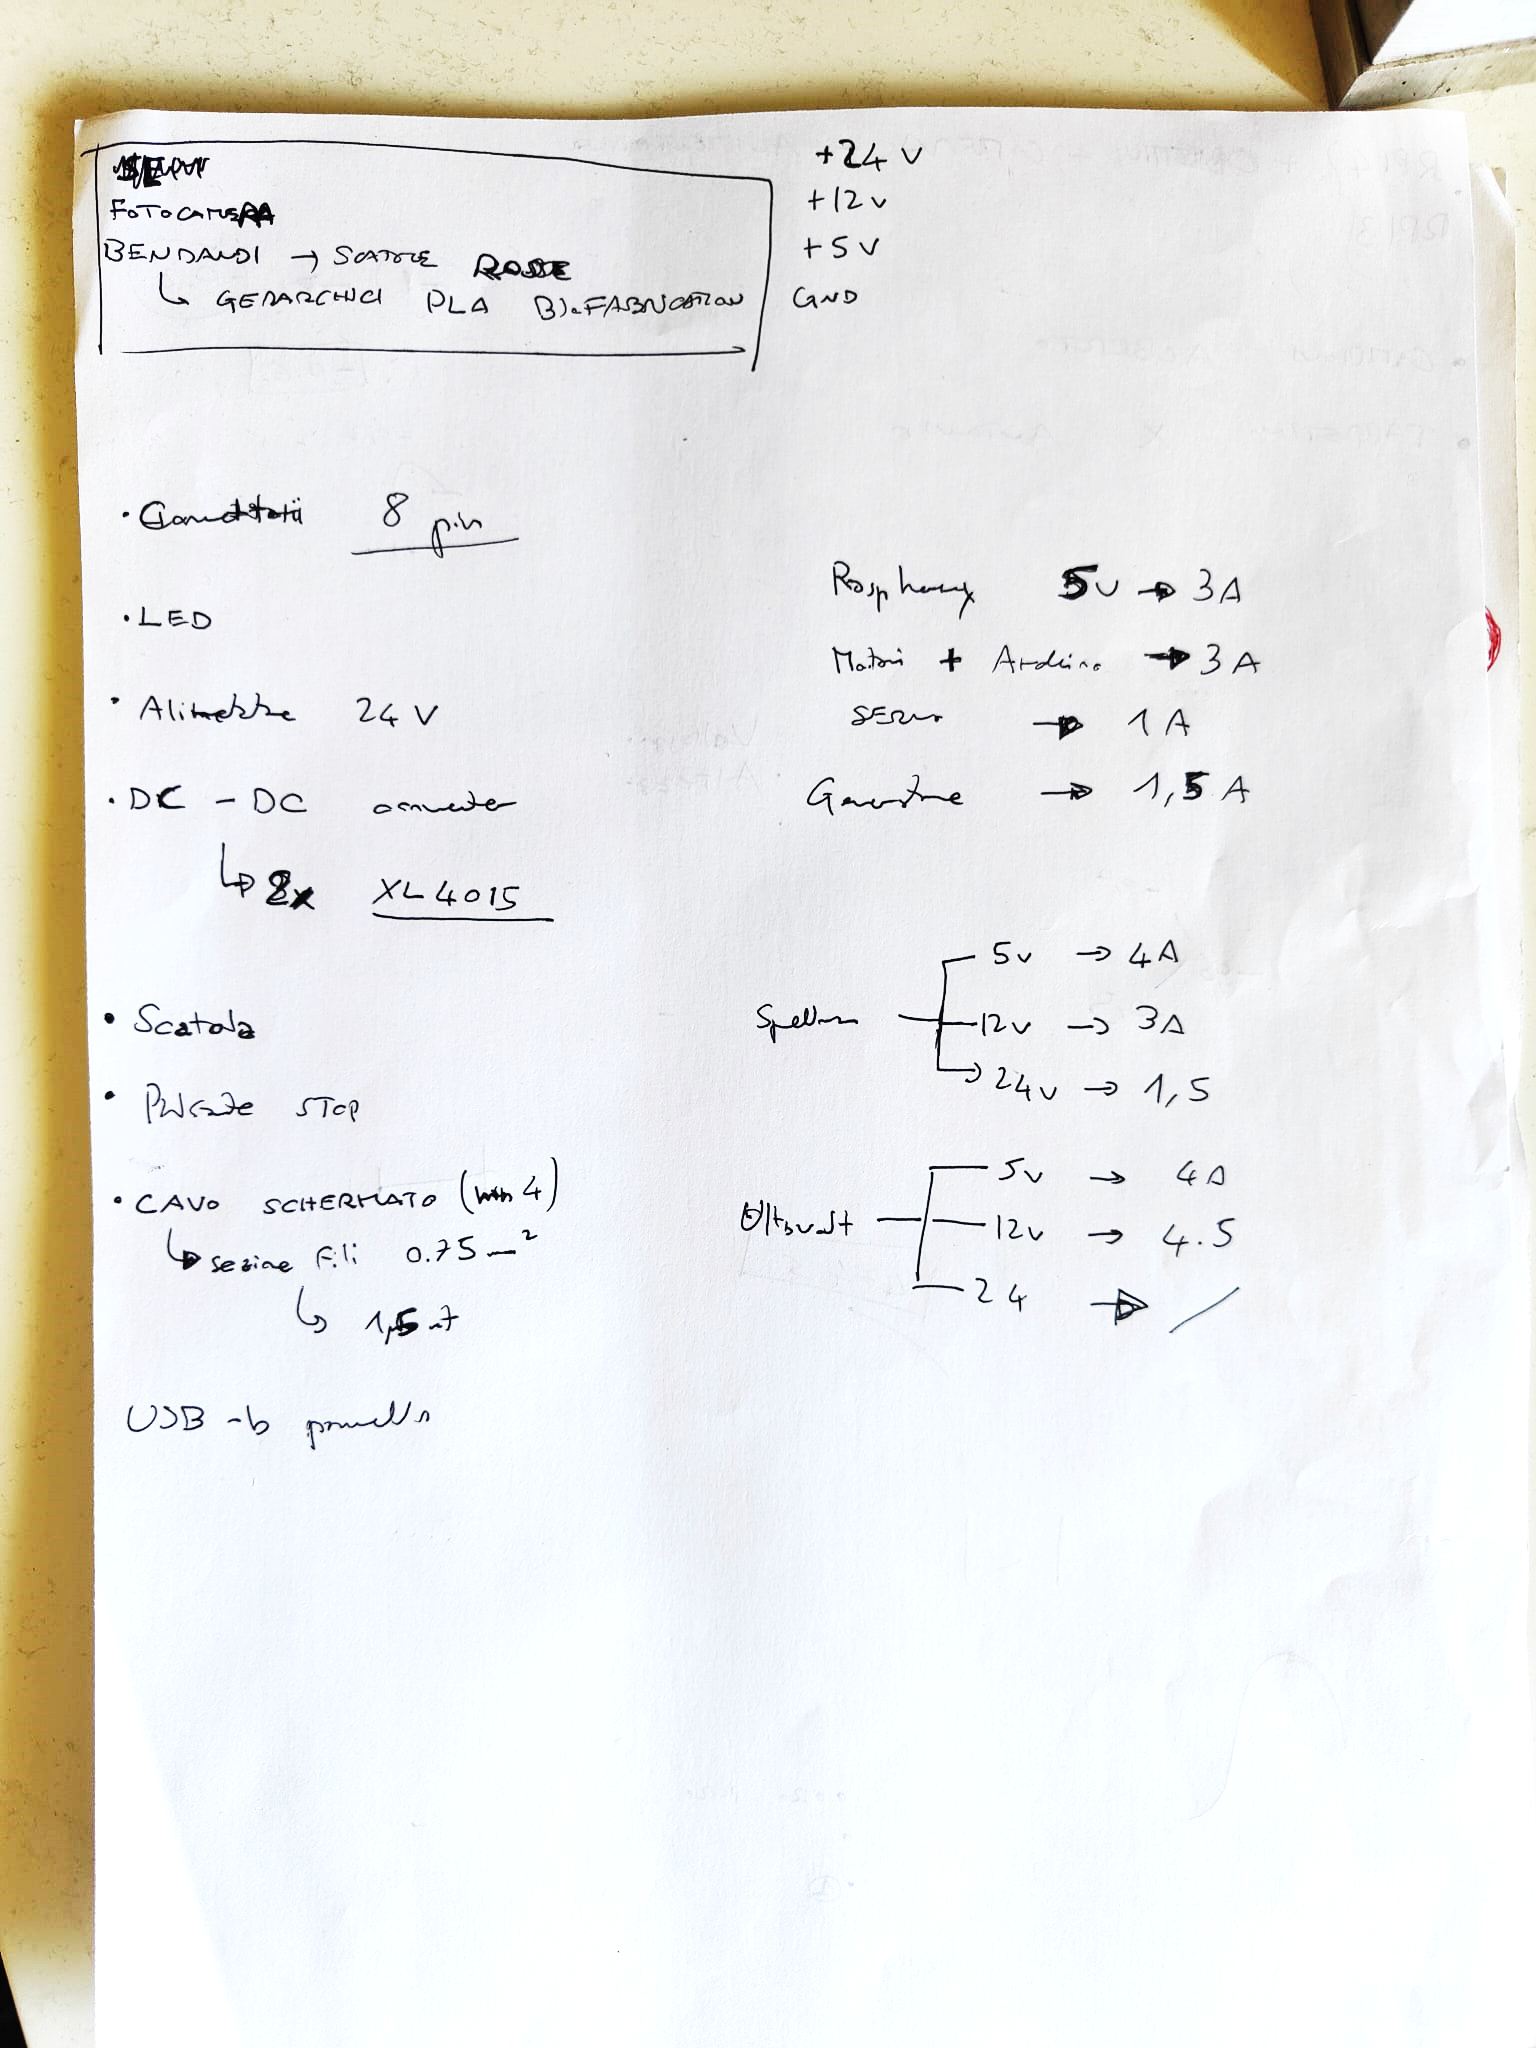 FOTOCAMERA
BENDANDI → SCATOLE ROSSE
↳ GERARCHICI PLA BIOFABRICATION
+24 V
+12 V
+5 V
GND
• Connettori 8 pin
• LED
• Alimentatore 24 V
• DC - DC converter
↳ 2x XL4015
• Scatola
• Pulsante STOP
• CAVO SCHERMATO (min 4)
↳ sezione fili 0.75 mm²
↳ 1,5 mt
USB-b pannello
Raspberry 5V → 3A
Motori + Arduino → 3A
SERVO → 1A
Generatore → 1,5A
Spellman
5v → 4A
12v → 3A
24v → 1,5
Ultravolt
5v → 4A
12v → 4.5
24 → /